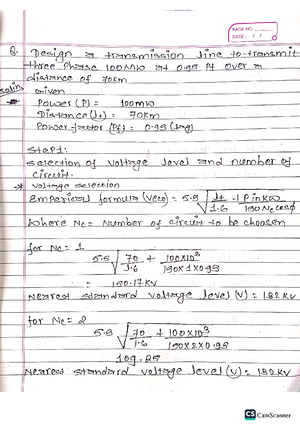 PAGE NO.
DATE: / /
Q. Design a transmission line to transmit
three Phase 100MW at 0.95 Pf over a
distance of 70km
Soln
Given
Power (P) = 100MW
Distance (Lt) = 70km
Power-factor (Pf) = 0.95 (lag)
Step1:
Selection of Voltage level and number of
Circuit.
→ Voltage Selection
Emperical formula (Veco) = 5.5 √ Lt/1.6 + P in KW/150 Nc cosϕ
Where Nc = Number of Circuit to be choosen
for Nc = 1
5.5 √ 70/1.6 + 100X10³/150X1X0.95
= 150.17KV
Nearest Standard Voltage level (V) = 132 KV
for Nc = 2
5.5 √ 70/1.6 + 100X10³/150X2X0.95
109.25
Nearest Standard Voltage level (V) = 132 KV
CS CamScanner